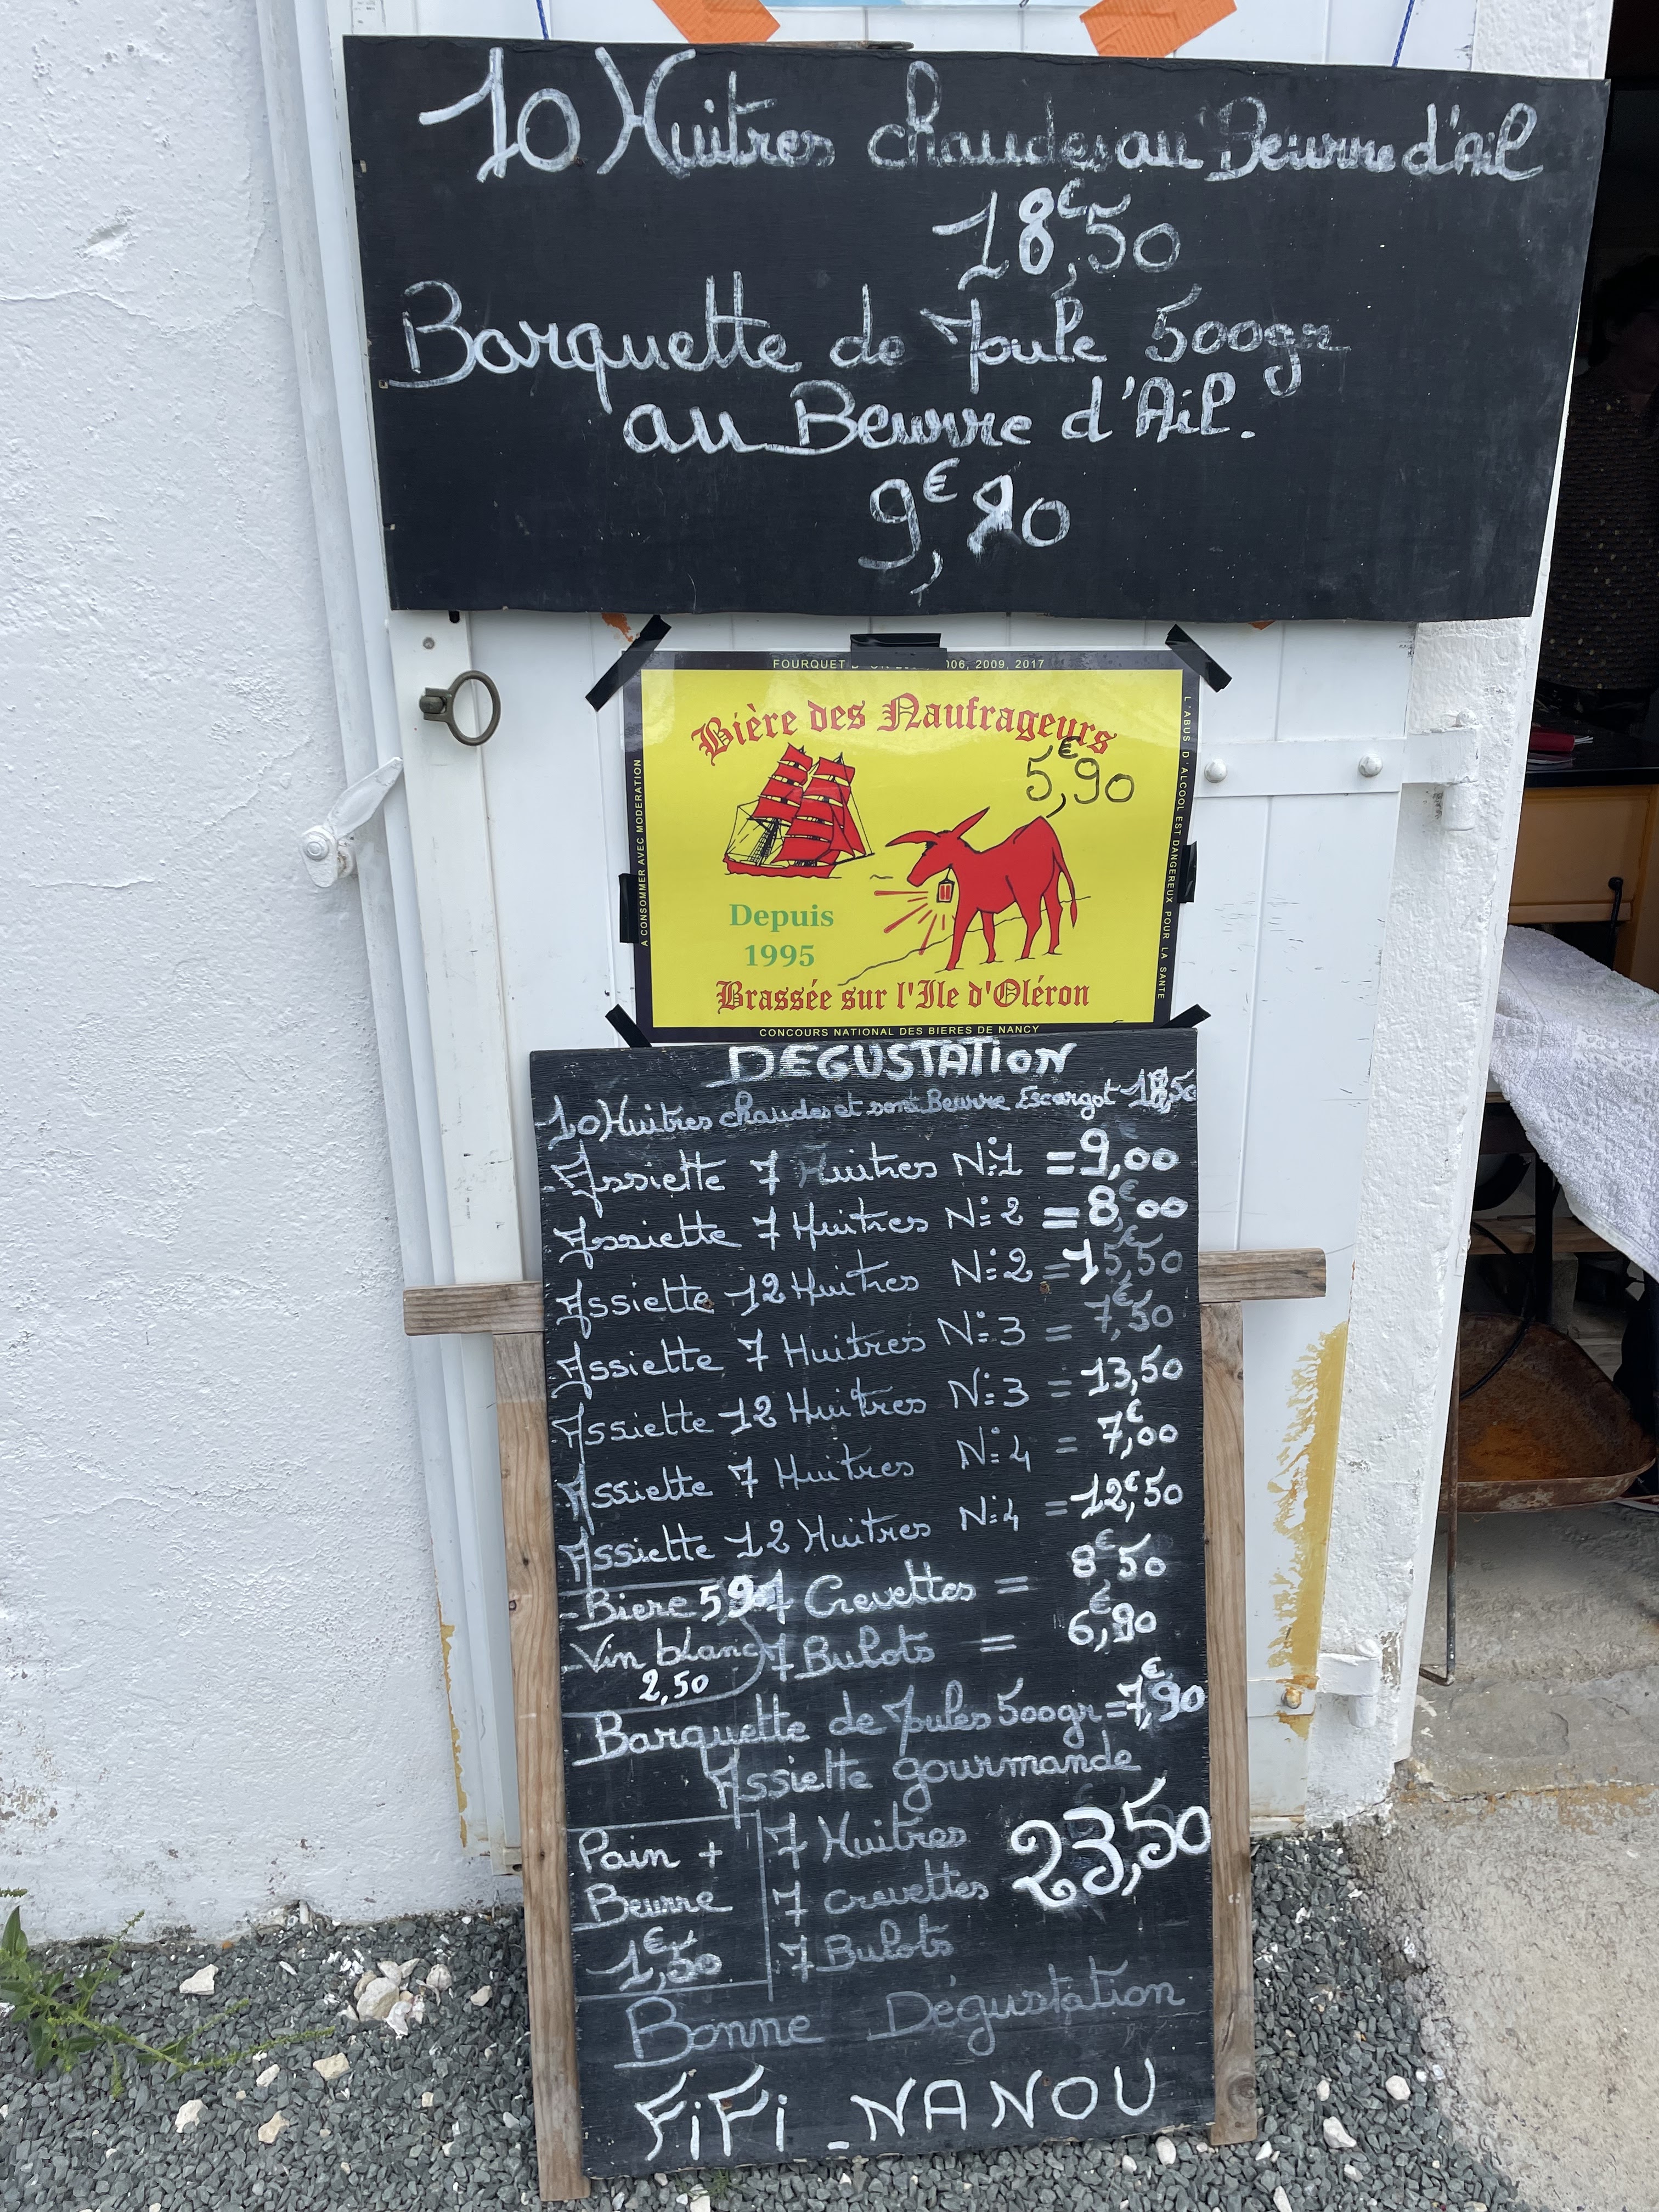 10 Huitres chaudes au Beurre d'Ail
18€,50
Barquette de Moule 500gr
au Beurre d'Ail.
9€,20
FOURQUET 006, 2009, 2017
Bière des Naufrageurs
5€,90
Depuis
1995
Brassée sur l'Ile d'Oléron
A CONSOMMER AVEC MODERATION
L'ABUS D'ALCOOL EST DANGEREUX POUR LA SANTE
CONCOURS NATIONAL DES BIERES DE NANCY
DEGUSTATION
10 Huitres chaudes et sont Beurre Escargot 18,50
-Assiette 7 Huitres N:1 =9,00
Assiette 7 Huitres N:2 =8€,00
Assiette 12 Huitres N:2 =15€,50
Assiette 7 Huitres N:3 = 7€,50
Assiette 12 Huitres N:3 = 13,50
Assiette 7 Huitres N:4 = 7€,00
Assiette 12 Huitres N:4 =12€,50
-Biere 5,90 7 Crevettes = 8€,50
-Vin blanc 7 Bulots = 6€,90
2,50
Barquette de Moules 500gr=7€,90
Assiette gourmande
Pain + 7 Huitres 23,50
Beurre 7 crevettes
1€,50 7 Bulots
Bonne Dégustation
FiFi _NANOU